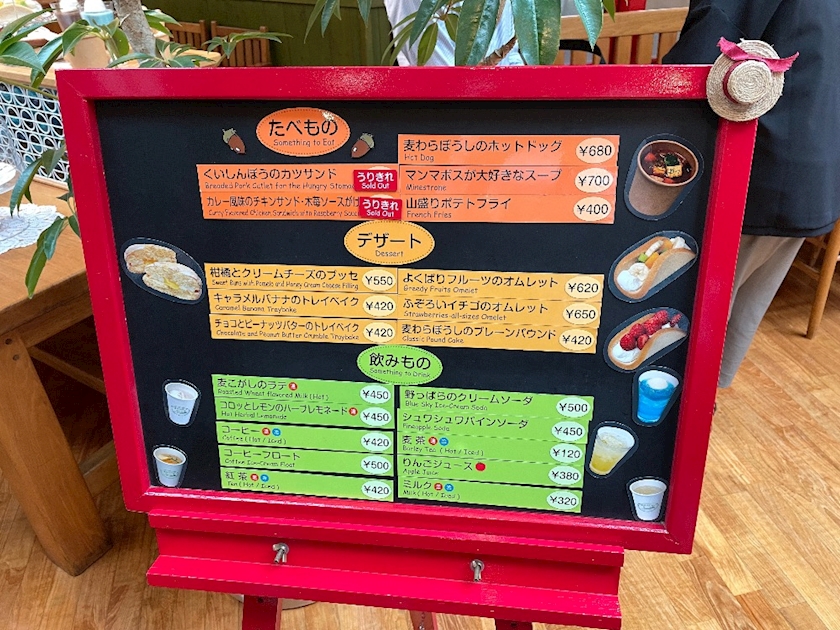 たべもの
Something to Eat
くいしんぼうのカツサンド
Breaded Pork Cutlet for the Hungry
うりきれ
Sold Out
カレー風味のチキンサンド・木苺ソースがけ
Curry Flavored Chicken Sandwich with Raspberry Sauce
うりきれ
Sold Out
麦わらぼうしのホットドッグ ¥680
Hot Dog
マンマボスが大好きなスープ ¥700
Minestrone
山盛りポテトフライ ¥400
French Fries
デザート
Dessert
柑橘とクリームチーズのブッセ ¥550
Sweet Buns with Pomelo and Honey Cream Cheese Filling
キャラメルバナナのトレイベイク ¥420
Caramel Banana Traybake
チョコとピーナッツバターのトレイベイク ¥420
Chocolate and Peanut Butter Crumble Traybake
よくばりフルーツのオムレット ¥620
Greedy Fruits Omelet
ふぞろいイチゴのオムレット ¥650
Strawberries-all-sizes Omelet
麦わらぼうしのプレーンパウンド ¥420
Classic Pound Cake
飲みもの
Something to Drink
麦こがしのラテ ¥450
Roasted Wheat flavored Milk (Hot)
コロッとレモンのハーブレモネード ¥450
Hot Herbal Lemonade
コーヒー ¥420
Coffee (Hot / Iced)
コーヒーフロート ¥500
Coffee Ice-Cream Float
紅茶 ¥420
Tea (Hot / Iced)
野っぱらのクリームソーダ ¥500
Blue Sky Ice-Cream Soda
シュワシュワパインソーダ ¥450
Pineapple Soda
麦茶 ¥120
Barley Tea (Hot / Iced)
りんごジュース ¥380
Apple Juice
ミルク ¥320
Milk (Hot / Iced)